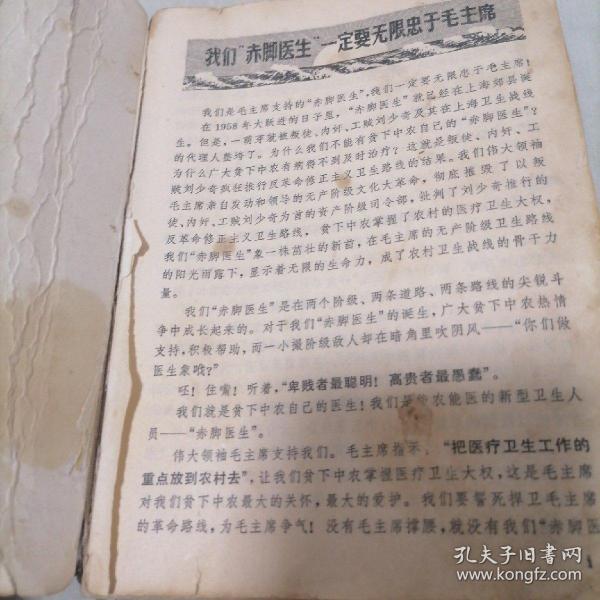 我们“赤脚医生”一定要无限忠于毛主席
我们是毛主席支持的“赤脚医生”,我们一定要无限忠于毛主席!
在1958年大跃进的日子里,“赤脚医生”就已经在上海郊县诞
生。但是,一萌芽就被叛徒、内奸、工贼刘少奇及其在上海卫生战线
的代理人整垮了。为什么我们不能有贫下中农自己的“赤脚医生”?
为什么广大贫下中农有病得不到及时治疗?这就是叛徒、内奸、工
贼刘少奇疯狂推行反革命修正主义卫生路线的结果。我们伟大领袖
毛主席亲自发动和领导的无产阶级文化大革命,彻底摧毁了以叛
徒、内奸、工贼刘少奇为首的资产阶级司令部,批判了刘少奇推行的
反革命修正主义卫生路线,贫下中农掌握了农村的医疗卫生大权,
我们“赤脚医生”象一株茁壮的新苗,在毛主席的无产阶级卫生路线
的阳光雨露下,显示着无限的生命力,成了农村卫生战线的骨干力
量。
我们“赤脚医生”是在两个阶级、两条道路、两条路线的尖锐斗
争中成长起来的。对于我们“赤脚医生”的诞生,广大贫下中农热情
支持,积极帮助,而一小撮阶级敌人却在暗角里吹阴风——“你们做
医生象哦?”
呸!住嘴!听着,“卑贱者最聪明!高贵者最愚蠢”。
我们就是贫下中农自己的医生!我们是能农能医的新型卫生人
员——“赤脚医生”。
伟大领袖毛主席支持我们。毛主席指示:“把医疗卫生工作的
重点放到农村去”,让我们贫下中农掌握医疗卫生大权,这是毛主席
对我们贫下中农最大的关怀,最大的爱护。我们要誓死捍卫毛主席
的革命路线,为毛主席争气!没有毛主席撑腰,就没有我们“赤脚医
1
孔夫子旧书网
www.kongfz.com